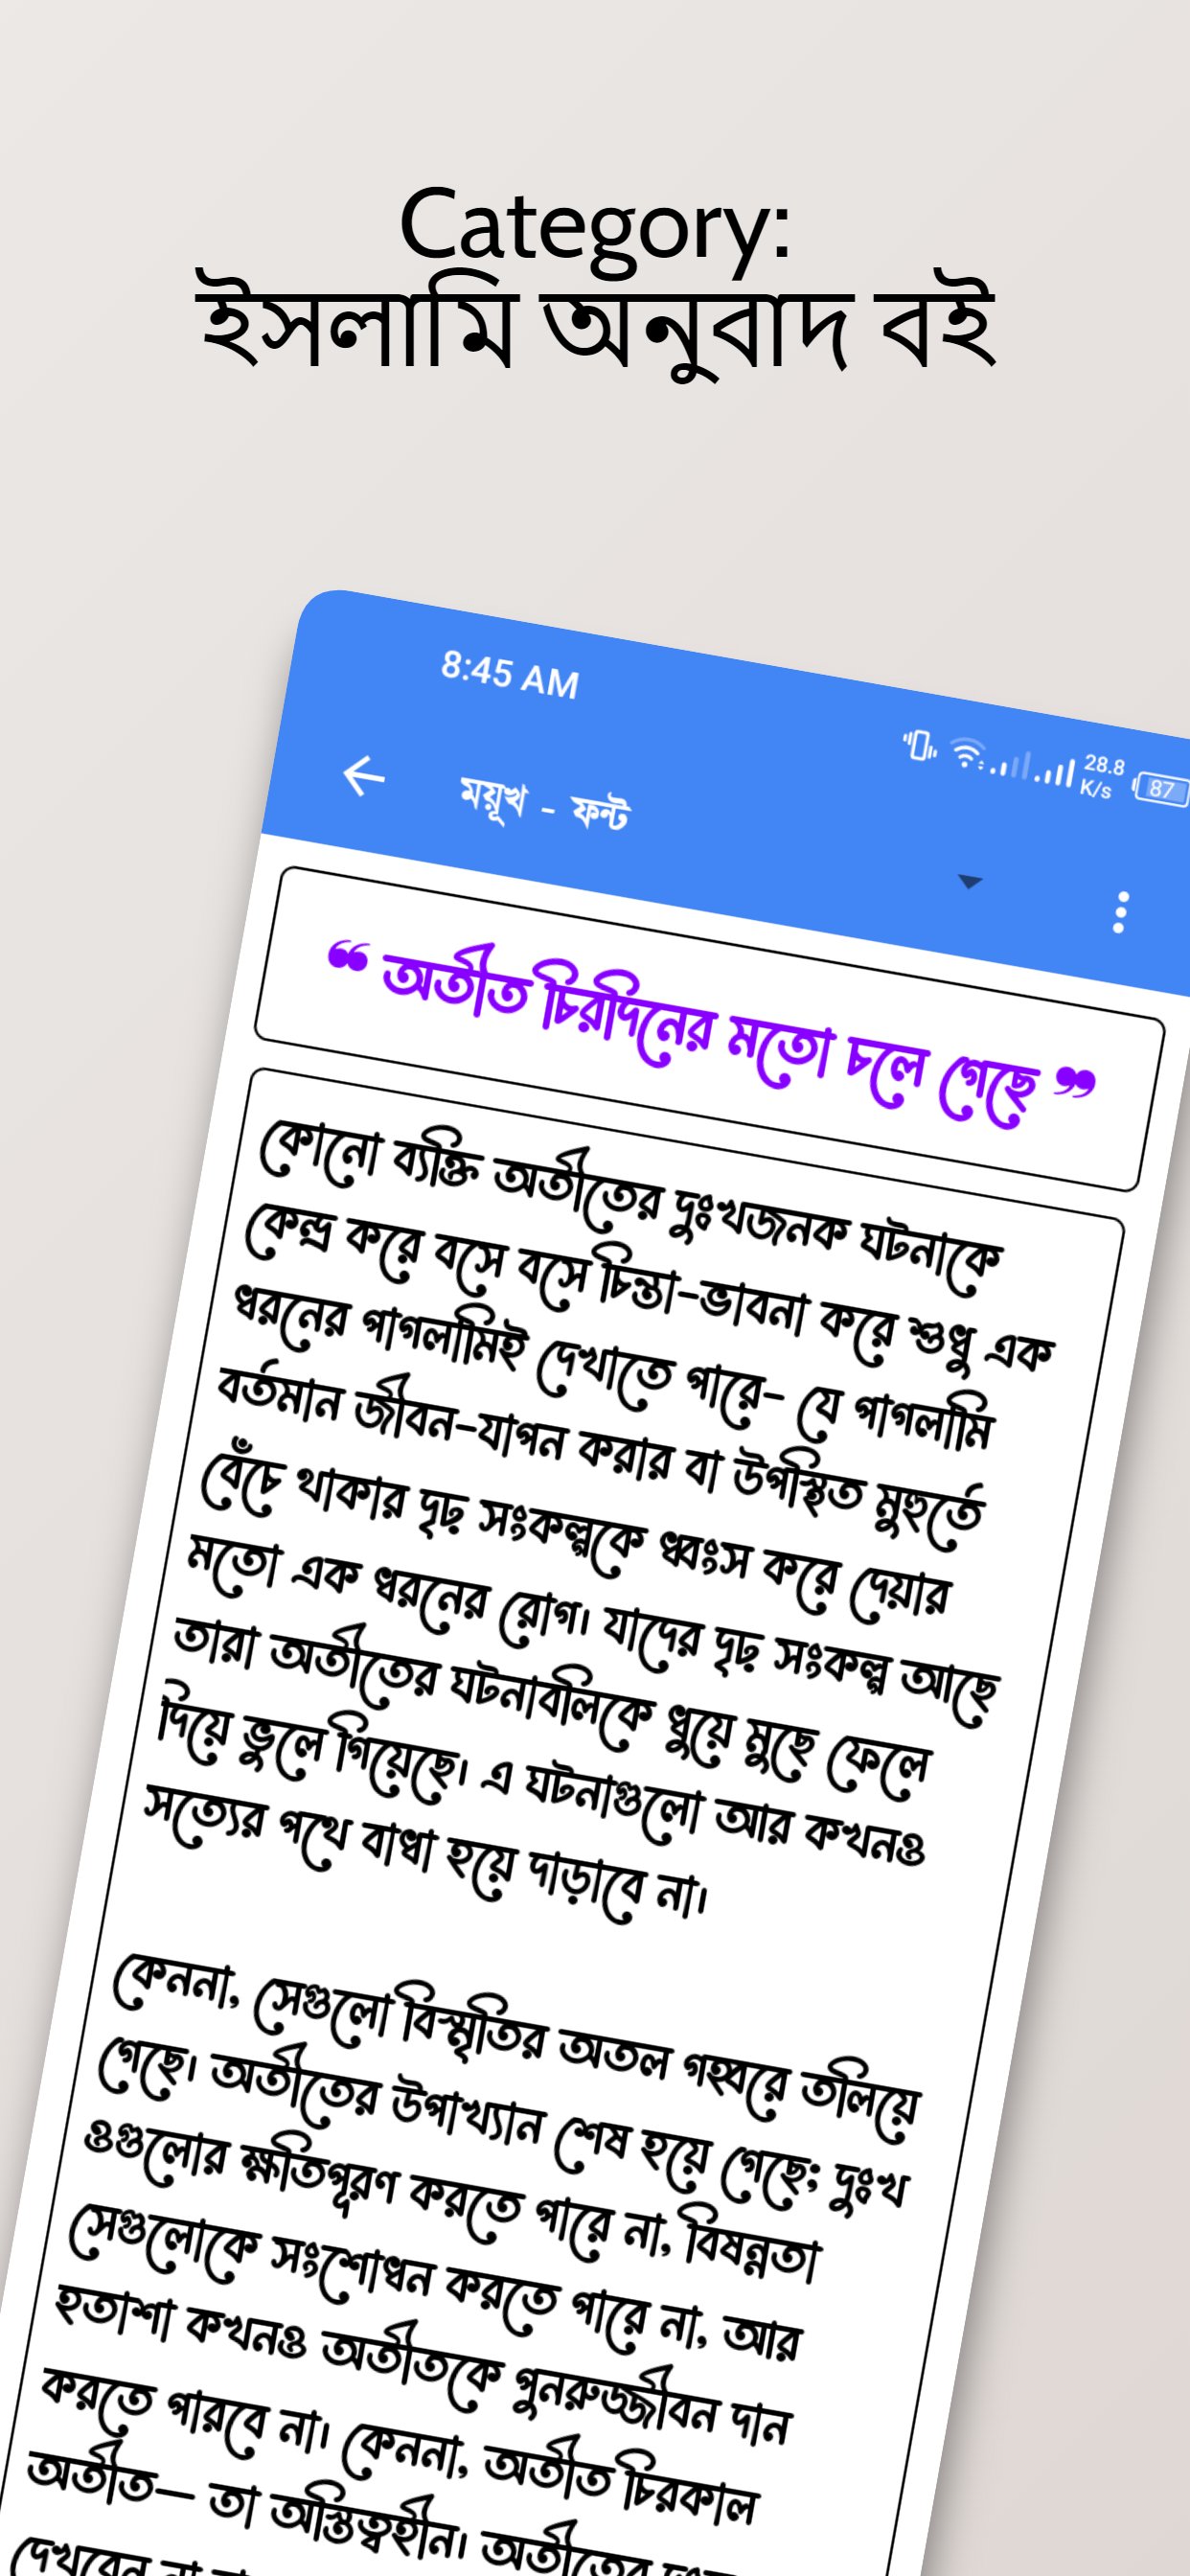 Category:
ইসলামি অনুবাদ বই
8:45 AM
28.8
K/s
87
ময়ূখ - ফন্ট
❝ অতীত চিরদিনের মতো চলে গেছে ❞
কোনো ব্যক্তি অতীতের দুঃখজনক ঘটনাকে
কেন্দ্র করে বসে বসে চিন্তা-ভাবনা করে শুধু এক
ধরনের পাগলামিই দেখাতে পারে- যে পাগলামি
বর্তমান জীবন-যাপন করার বা উপস্থিত মুহুর্তে
বেঁচে থাকার দৃঢ় সংকল্পকে ধ্বংস করে দেয়ার
মতো এক ধরনের রোগ। যাদের দৃঢ় সংকল্প আছে
তারা অতীতের ঘটনাবলিকে ধুয়ে মুছে ফেলে
দিয়ে ভুলে গিয়েছে। এ ঘটনাগুলো আর কখনও
সত্যের পথে বাধা হয়ে দাড়াবে না।
কেননা, সেগুলো বিস্মৃতির অতল গহ্বরে তলিয়ে
গেছে। অতীতের উপাখ্যান শেষ হয়ে গেছে; দুঃখ
ওগুলোর ক্ষতিপূরণ করতে পারে না, বিষন্নতা
সেগুলোকে সংশোধন করতে পারে না, আর
হতাশা কখনও অতীতকে পুনরুজ্জীবন দান
করতে পারবে না। কেননা, অতীত চিরকাল
অতীত— তা অস্তিত্বহীন। অতীতের
দেখবেন না